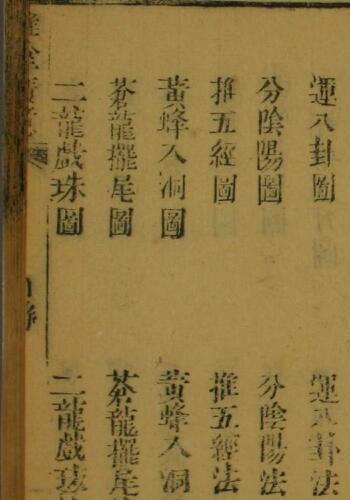 運八卦圖
運八卦法
分陰陽圖
分陰陽法
推五經圖
推五經法
黃蜂入洞圖
黃蜂入洞
蒼龍擺尾圖
蒼龍擺尾
二龍戲珠圖
二龍戲珠